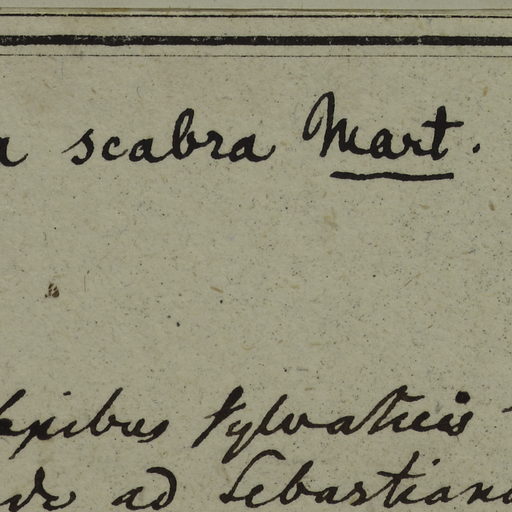 a scabra Mart.
sepibus sylvaticis
ad Sebastiano